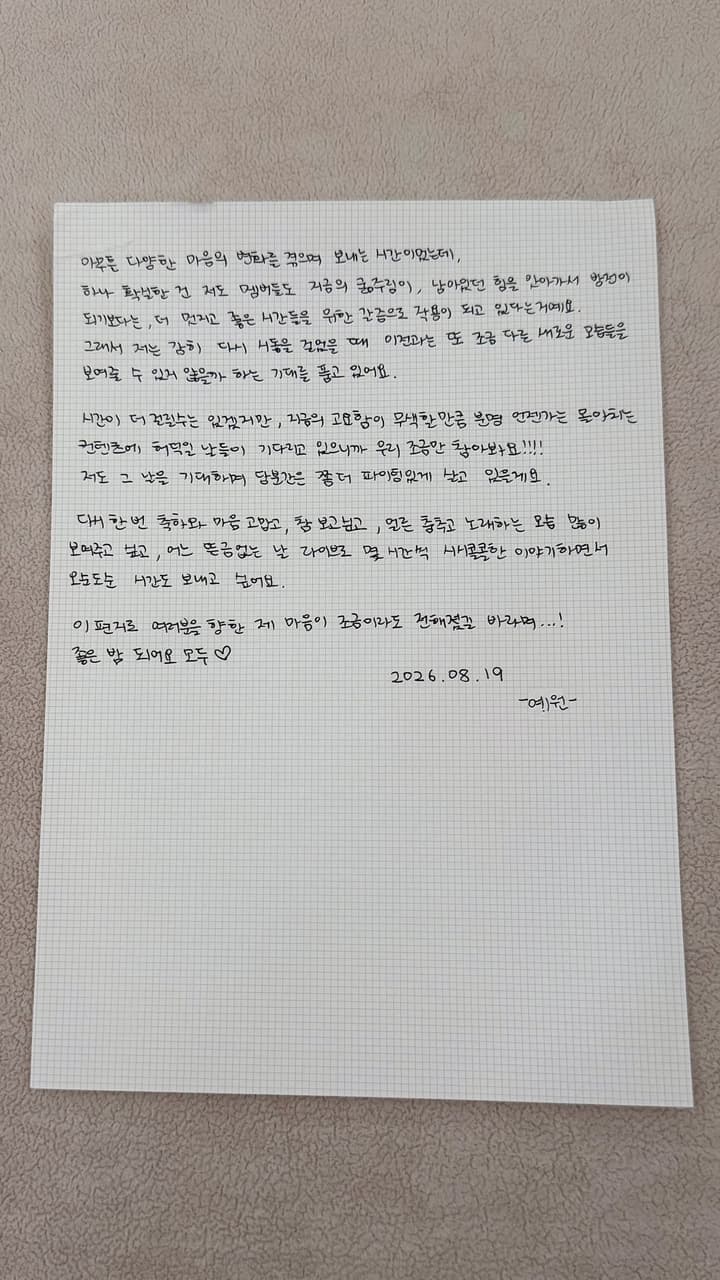 아무튼 다양한 마음의 변화를 겪으며 보내는 시간이었는데,
하나 확실한 건 저도 멤버들도 지금의 굶주림이, 남아있던 힘을 앗아가서 방전이
되기보다는, 더 멋지고 좋은 시간들을 위한 갈증으로 작용이 되고 있다는거예요.
그래서 저는 감히 다시 시동을 걸었을 때 이전과는 또 조금 다른 새로운 모습들을
보여줄 수 있지 않을까 하는 기대를 품고 있어요.
시간이 더 걸릴수는 있겠지만, 지금의 고요함이 무색할만큼 분명 언젠가는 몰아치는
컨텐츠에 허덕일 날들이 기다리고 있으니까 우리 조금만 참아봐요!!!!
저도 그 날을 기대하며 당분간은 쫌 더 파이팅있게 살고 있을게요.
다시 한번 축하와 마음 고맙고, 참 보고싶고, 얼른 춤추고 노래하는 모습 많이
보여주고 싶고, 어느 뜬금없는 날 라이브로 몇 시간씩 시시콜콜한 이야기하면서
오손도손 시간도 보내고 싶어요.
이 편지로 여러분을 향한 제 마음이 조금이라도 전해졌길 바라며...!
좋은 밤 되어요 모두♡
2026.08.19
-예원-